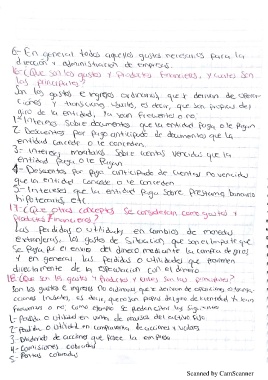 6- En general todos aquellos gastos necesarios para la
dirección y administración de empresas.
16-¿Que son los gastos y Productos financieros, y cuales son
los principales?
Son los gastos e ingresos ordinarios, que se derivan de operaciones
y transacciones usuales, es decir, que son propias del
giro de la entidad, ya sean frecuentes o no.
1- Intereses sobre documentos que la entidad paga o le pagan
2- Descuentos por pago anticipado de documentos que la
entidad concede o le conceden.
3- Intereses moratorios sobre cuentas vencidas que la
entidad paga o le pagan
4- Descuentos por pago anticipado de cuentas no vencidas
que la entidad concede o le conceden
5- Intereses que la entidad paga sobre prestamos bancarios
hipotecarios etc.
17-¿Que otros conceptos se consideran como gastos y
productos financieros?
Las perdidas o utilidades en cambios de monedas
extranjeras, los gastos de situación, que son el importe que
se paga por el envio del dinero mediante la compra de giros
y en general las perdidas o utilidades que provienen
directamente de la especulación con el dinero
18-¿Que son los gastos y Productos y cuales son los principales?
Son los gastos e ingresos
1- Perdida o utilidad en venta de valores del activo fijo
2- Perdida o utilidad en compraventa de acciones y valores
3- Dividendo de acciones que posee la empresa
4- Comisiones cobradas
5- Rentas cobradas
Scanned by CamScanner